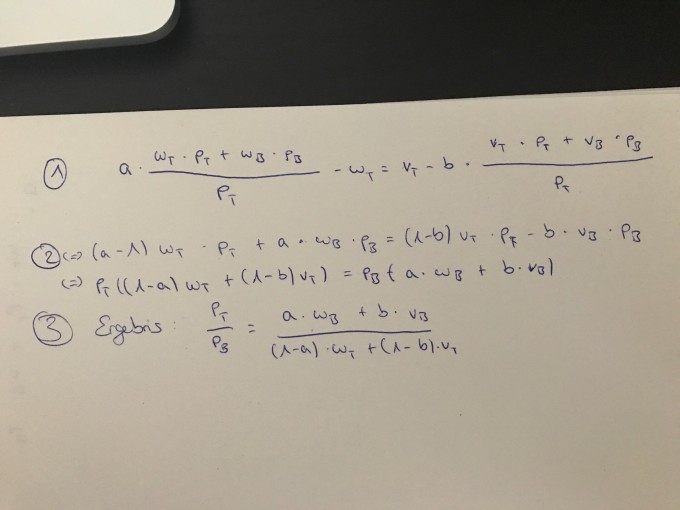 ① a · (ω_T · p_T + ω_B · p_B) / p_T - ω_T = v_T - b · (v_T · p_T + v_B · p_B) / p_T
② (=) (a-1) ω_T · p_T + a · ω_B · p_B = (1-b) v_T · p_T - b · v_B · p_B
(=) p_T ((1-a) ω_T + (1-b) v_T) = p_B ( a · ω_B + b · v_B)
③ Ergebnis : p_T / p_B = (a · ω_B + b · v_B) / ((1-a) · ω_T + (1-b) · v_T)